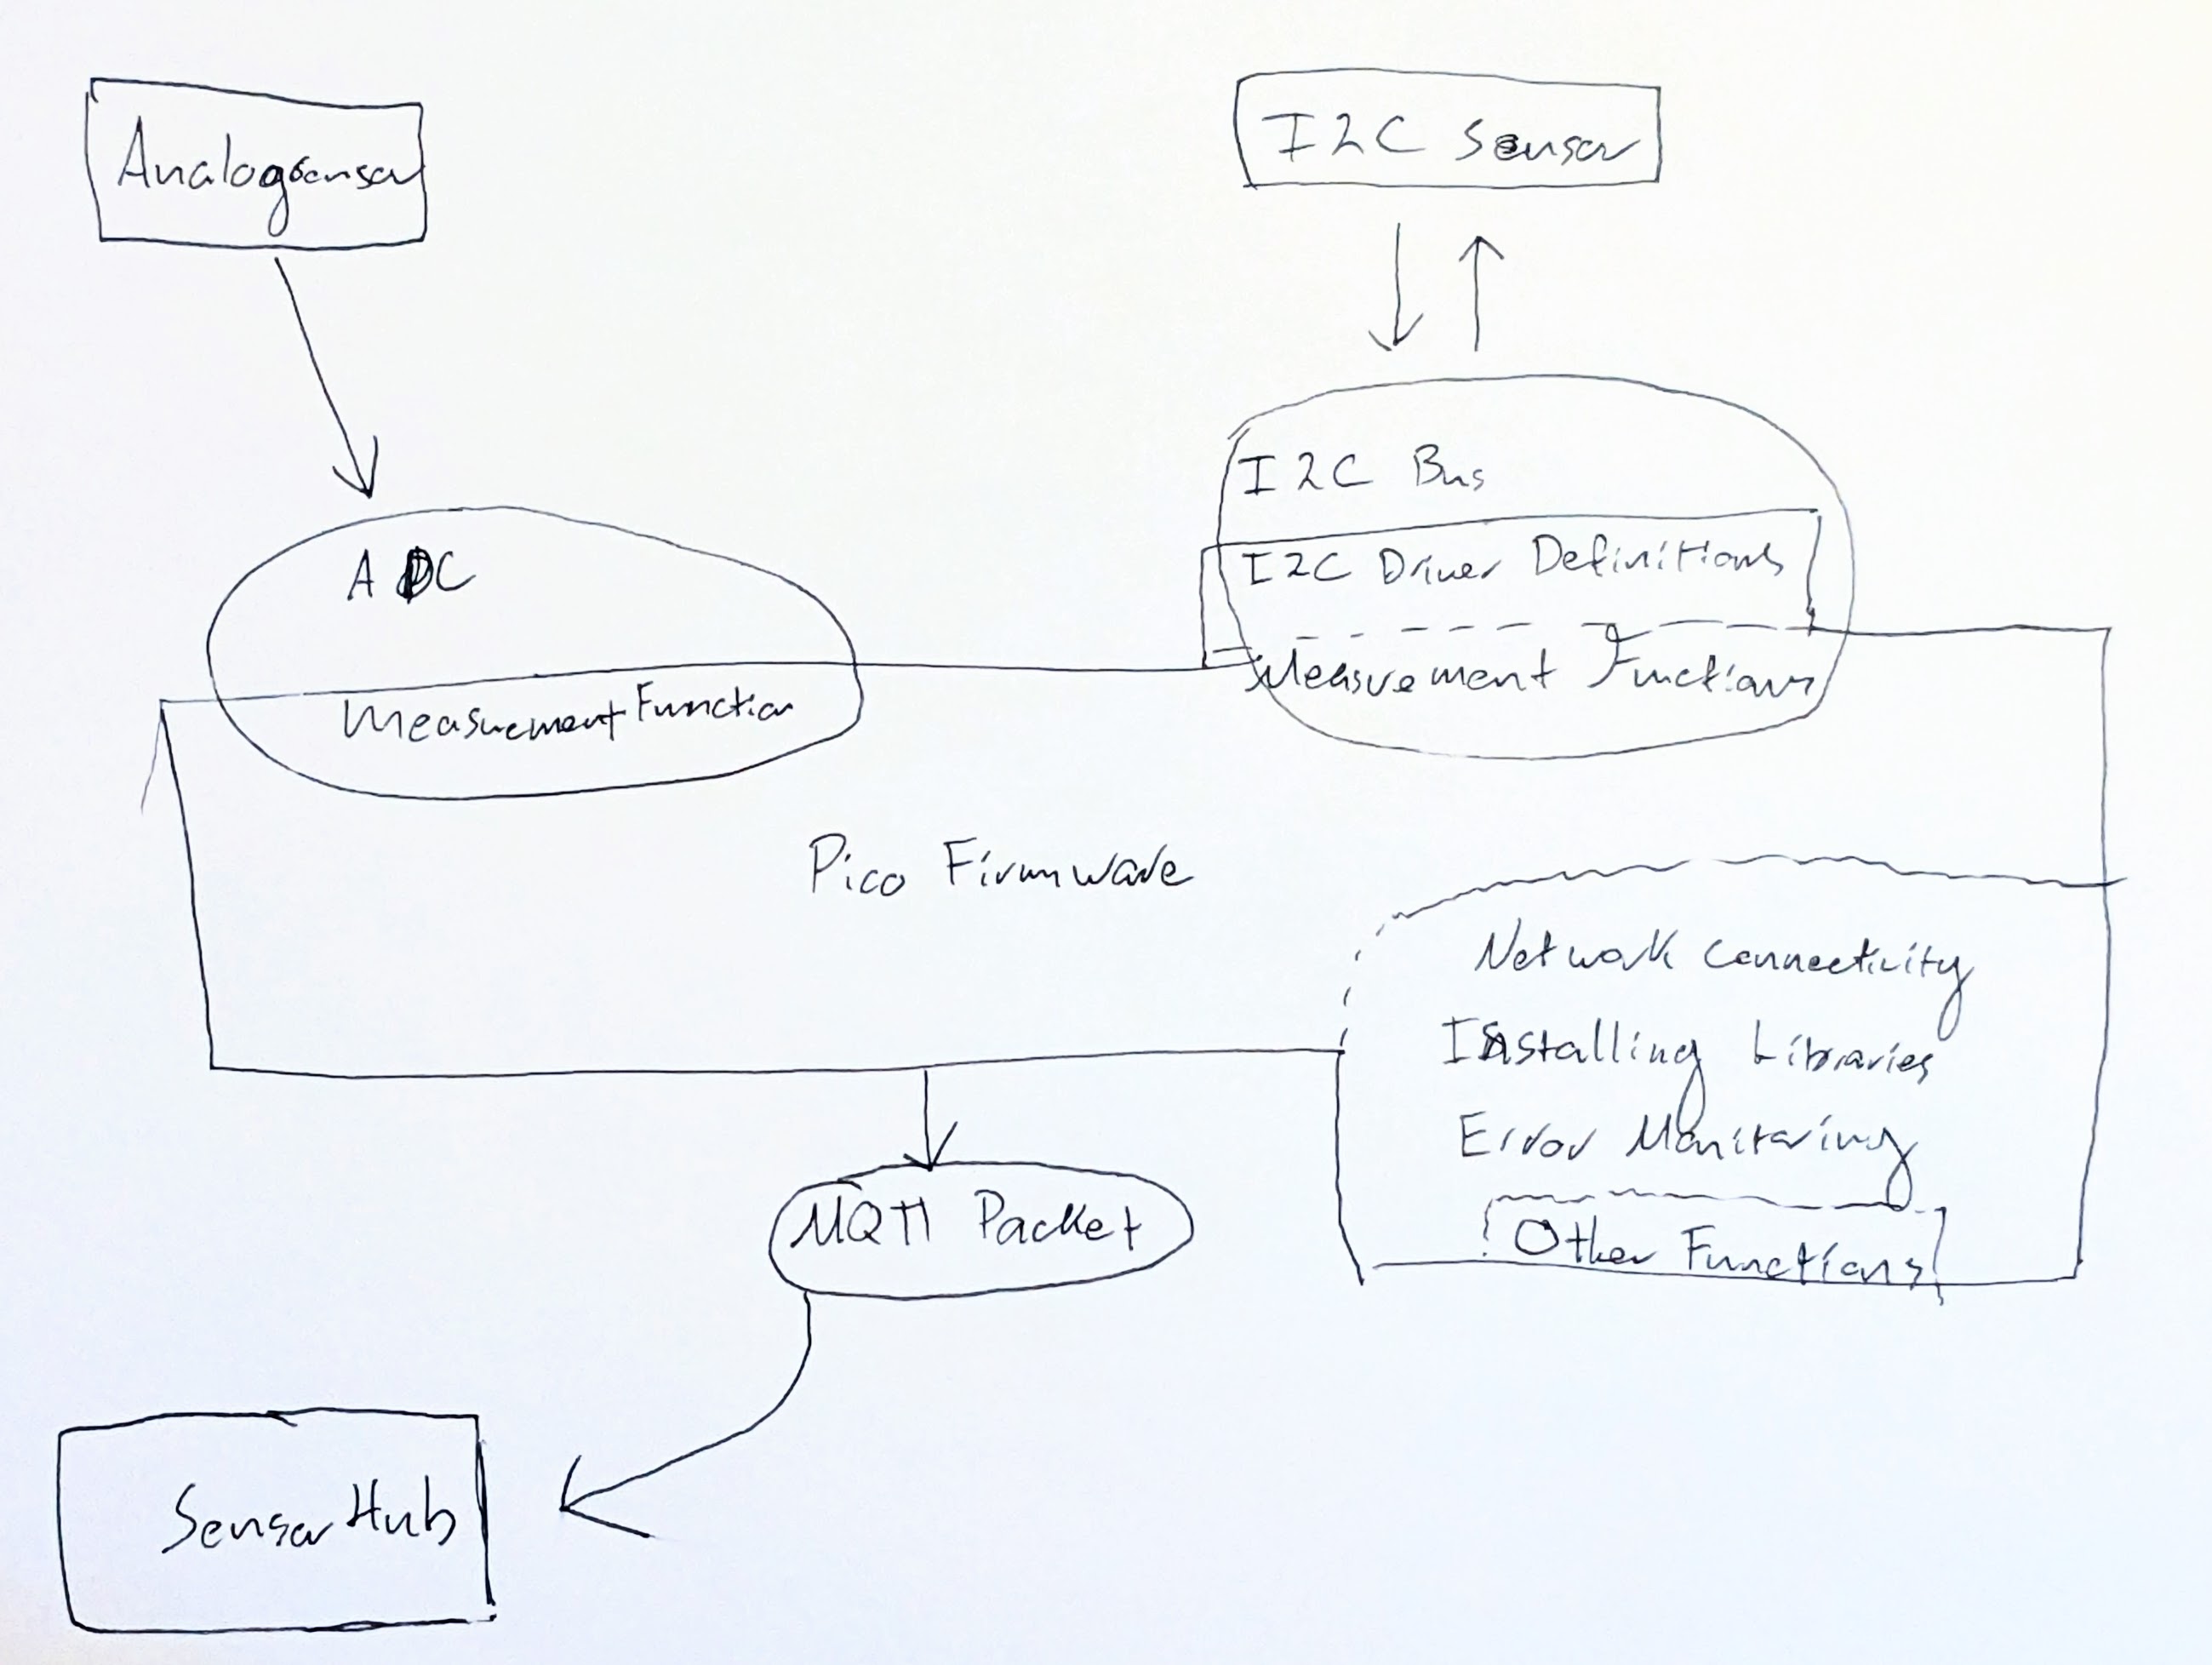 Analogsensor
I2C Sensor
I2C Bus
I2C Driver Definitions
Measurement Functions
ADC
Measurement Function
Pico Firmware
Network Connectivity
Installing Libraries
Error Monitoring
Other Functions
MQTT Packet
Sensor Hub